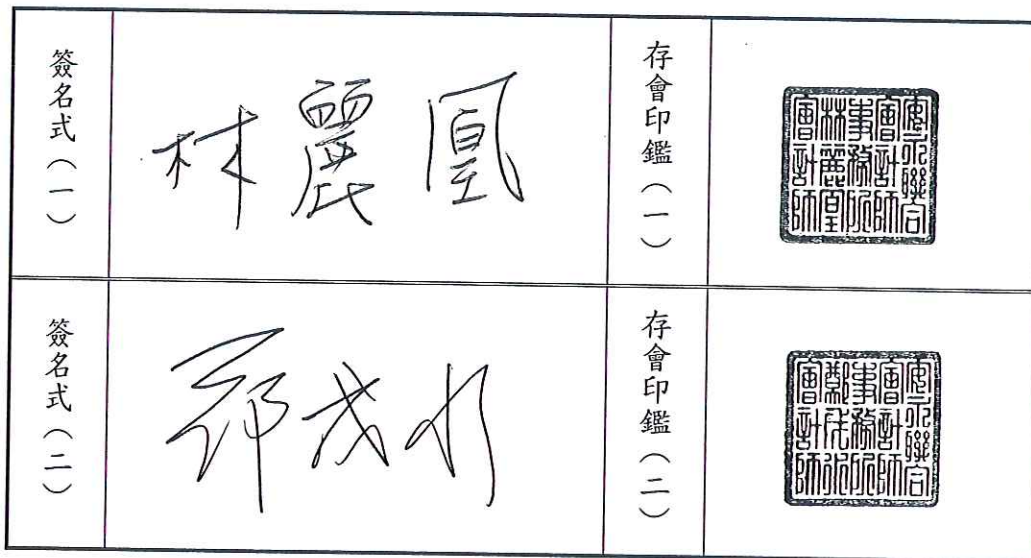 簽名式（一）
林麗凰
存會印鑑（一）
安永聯合
會計師
事務所
林麗凰
會計師
簽名式（二）
鄭戊水
存會印鑑（二）
安永聯合
會計師
事務所
鄭戊水
會計師